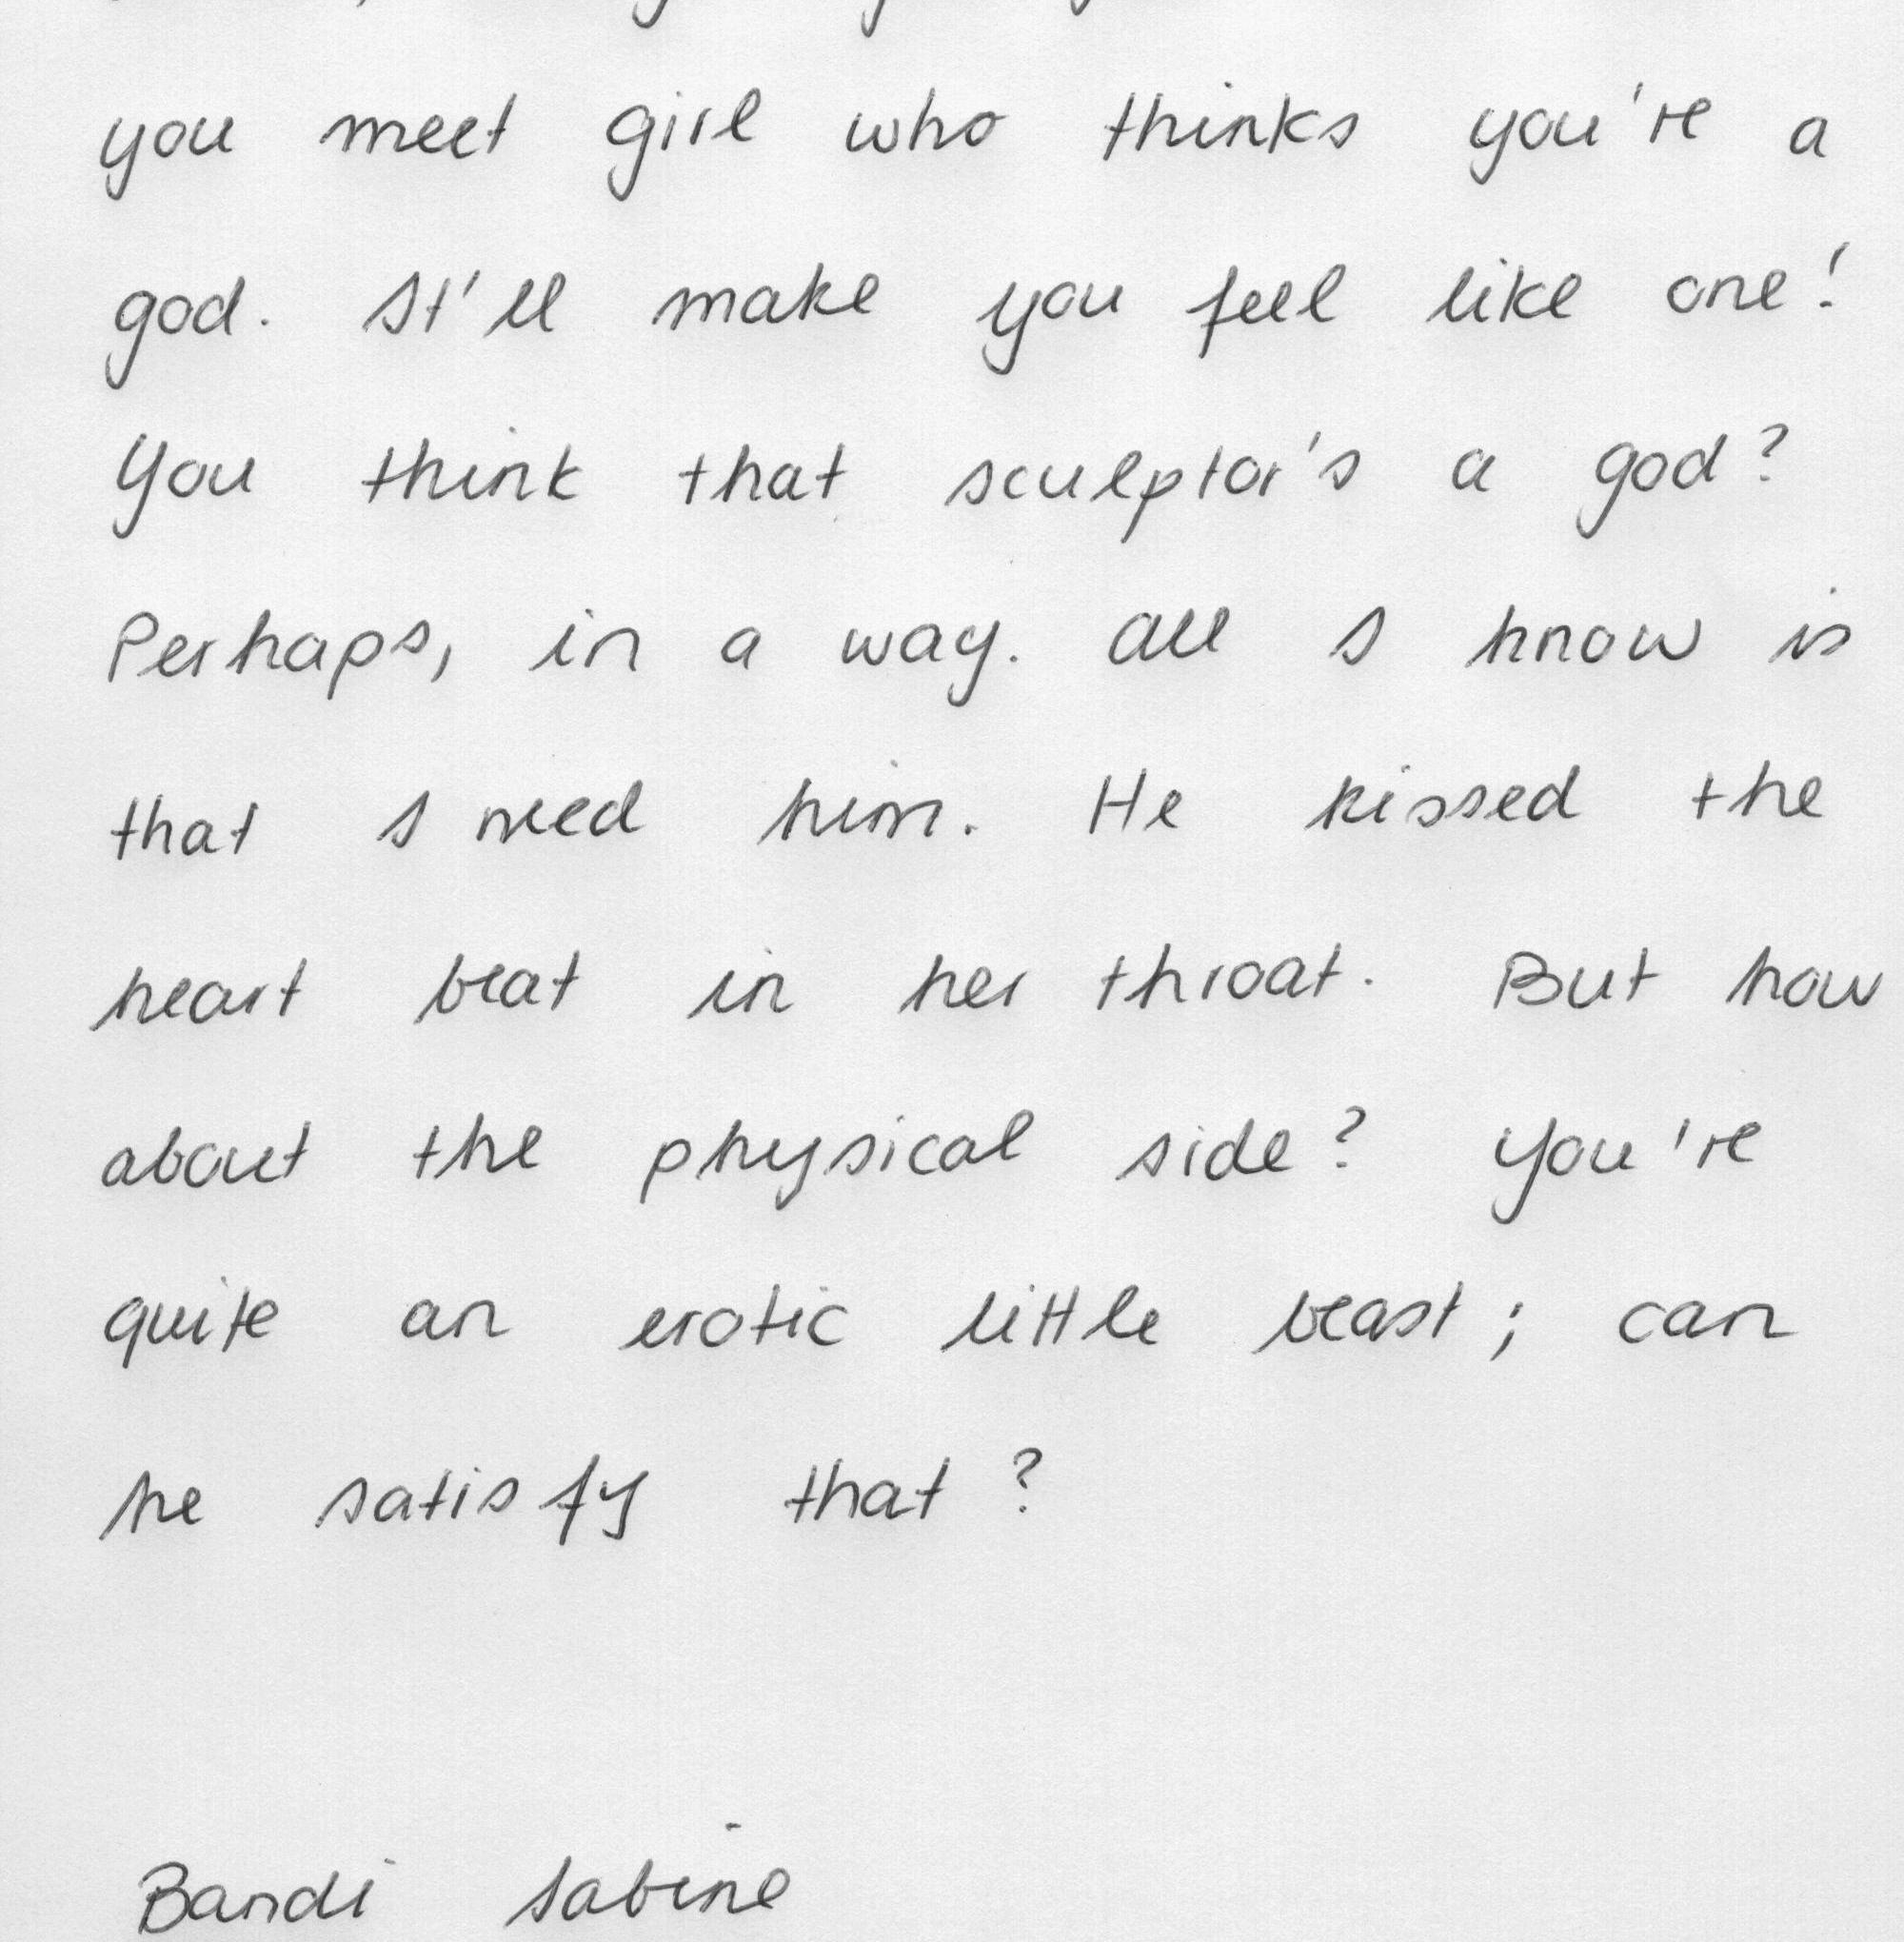 you meet girl who thinks you're a
god. It'll make you feel like one!
You think that sculptor's a god?
Perhaps, in a way. All I know is
that I need him. He kissed the
heart beat in her throat. But how
about the physical side? You're
quite an erotic little beast; can
he satisfy that?
Bandi Sabine